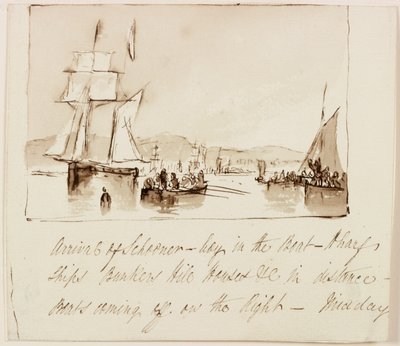 Arrival of Schooner - boy in the Boat - Wharf,
Ships Bunkers Hill Houses &c in distance -
Boats coming off on the Right - Midday